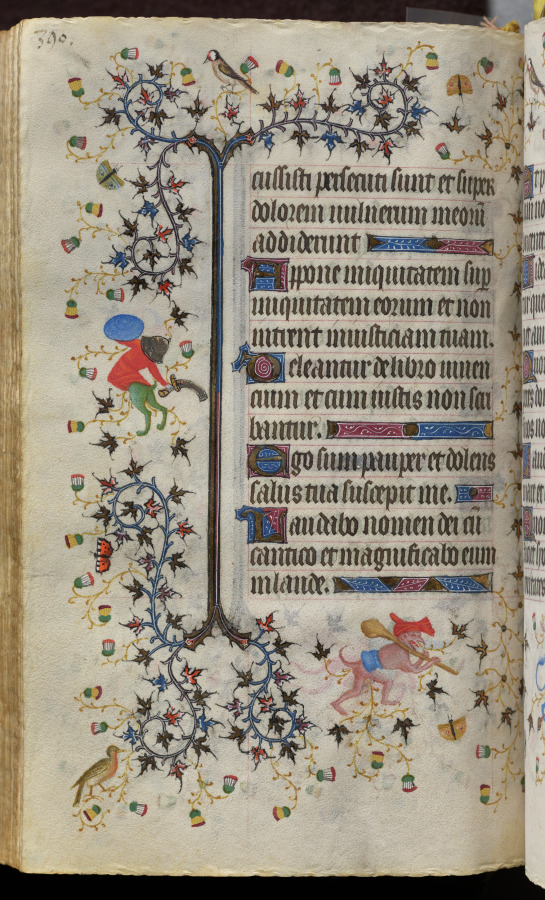 390.
cussisti persecuti sunt et super
dolorem vulnerum meorū
addiderunt
Appone iniquitatem sup
iniquitatem eorum et non
intrent in iusticiam tuam.
Deleantur de libro viven
cium et cum iustis non scri
bantur.
Ego sum pauper et dolens
salus tua suscepit me.
Laudabo nomen dei cū
cantico et magnificabo eum
in laude.